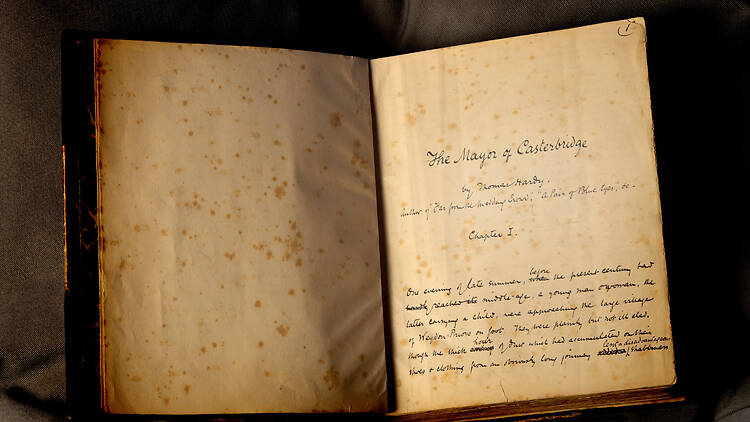 1
The Mayor of Casterbridge
by Thomas Hardy.
Author of "Far from the Madding Crowd," "A Pair of Blue Eyes," &c.
Chapter I.
before
One evening of late summer, when the present century had
hardly reached its middle-age, a young man & woman, the
latter carrying a child, were approaching the large village
of Weydon-Priors on foot. They were plainly but not ill clad,
though the thick hoar
of dust which had accumulated on their
lent a disadvantageous
shoes & clothing from an obviously long journey shabbiness